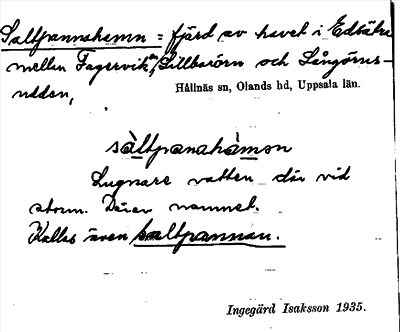 Saltpannahamn = fjärd av havet i Edsätra
mellan Fagervik, Lillbarörn och Långörns-
udden,
Hållnäs sn, Olands hd, Uppsala län.
sàltpanahàmən
Lugnare vatten där vid
storm. Därav namnet.
Kallas även saltpannan.
Ingegärd Isaksson 1935.